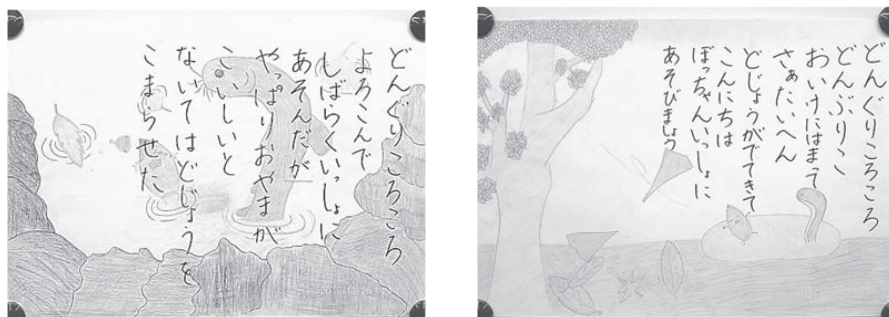 どんぐりころころ
どんぶりこ
おいけにはまって
さぁたいへん
どじょうがでてきて
こんにちは
ぼっちゃんいっしょに
あそびましょう
どんぐりころころ
よろこんで
しばらくいっしょに
あそんだが
やっぱりおやまが
こいしいと
ないてはどじょうを
こまらせた